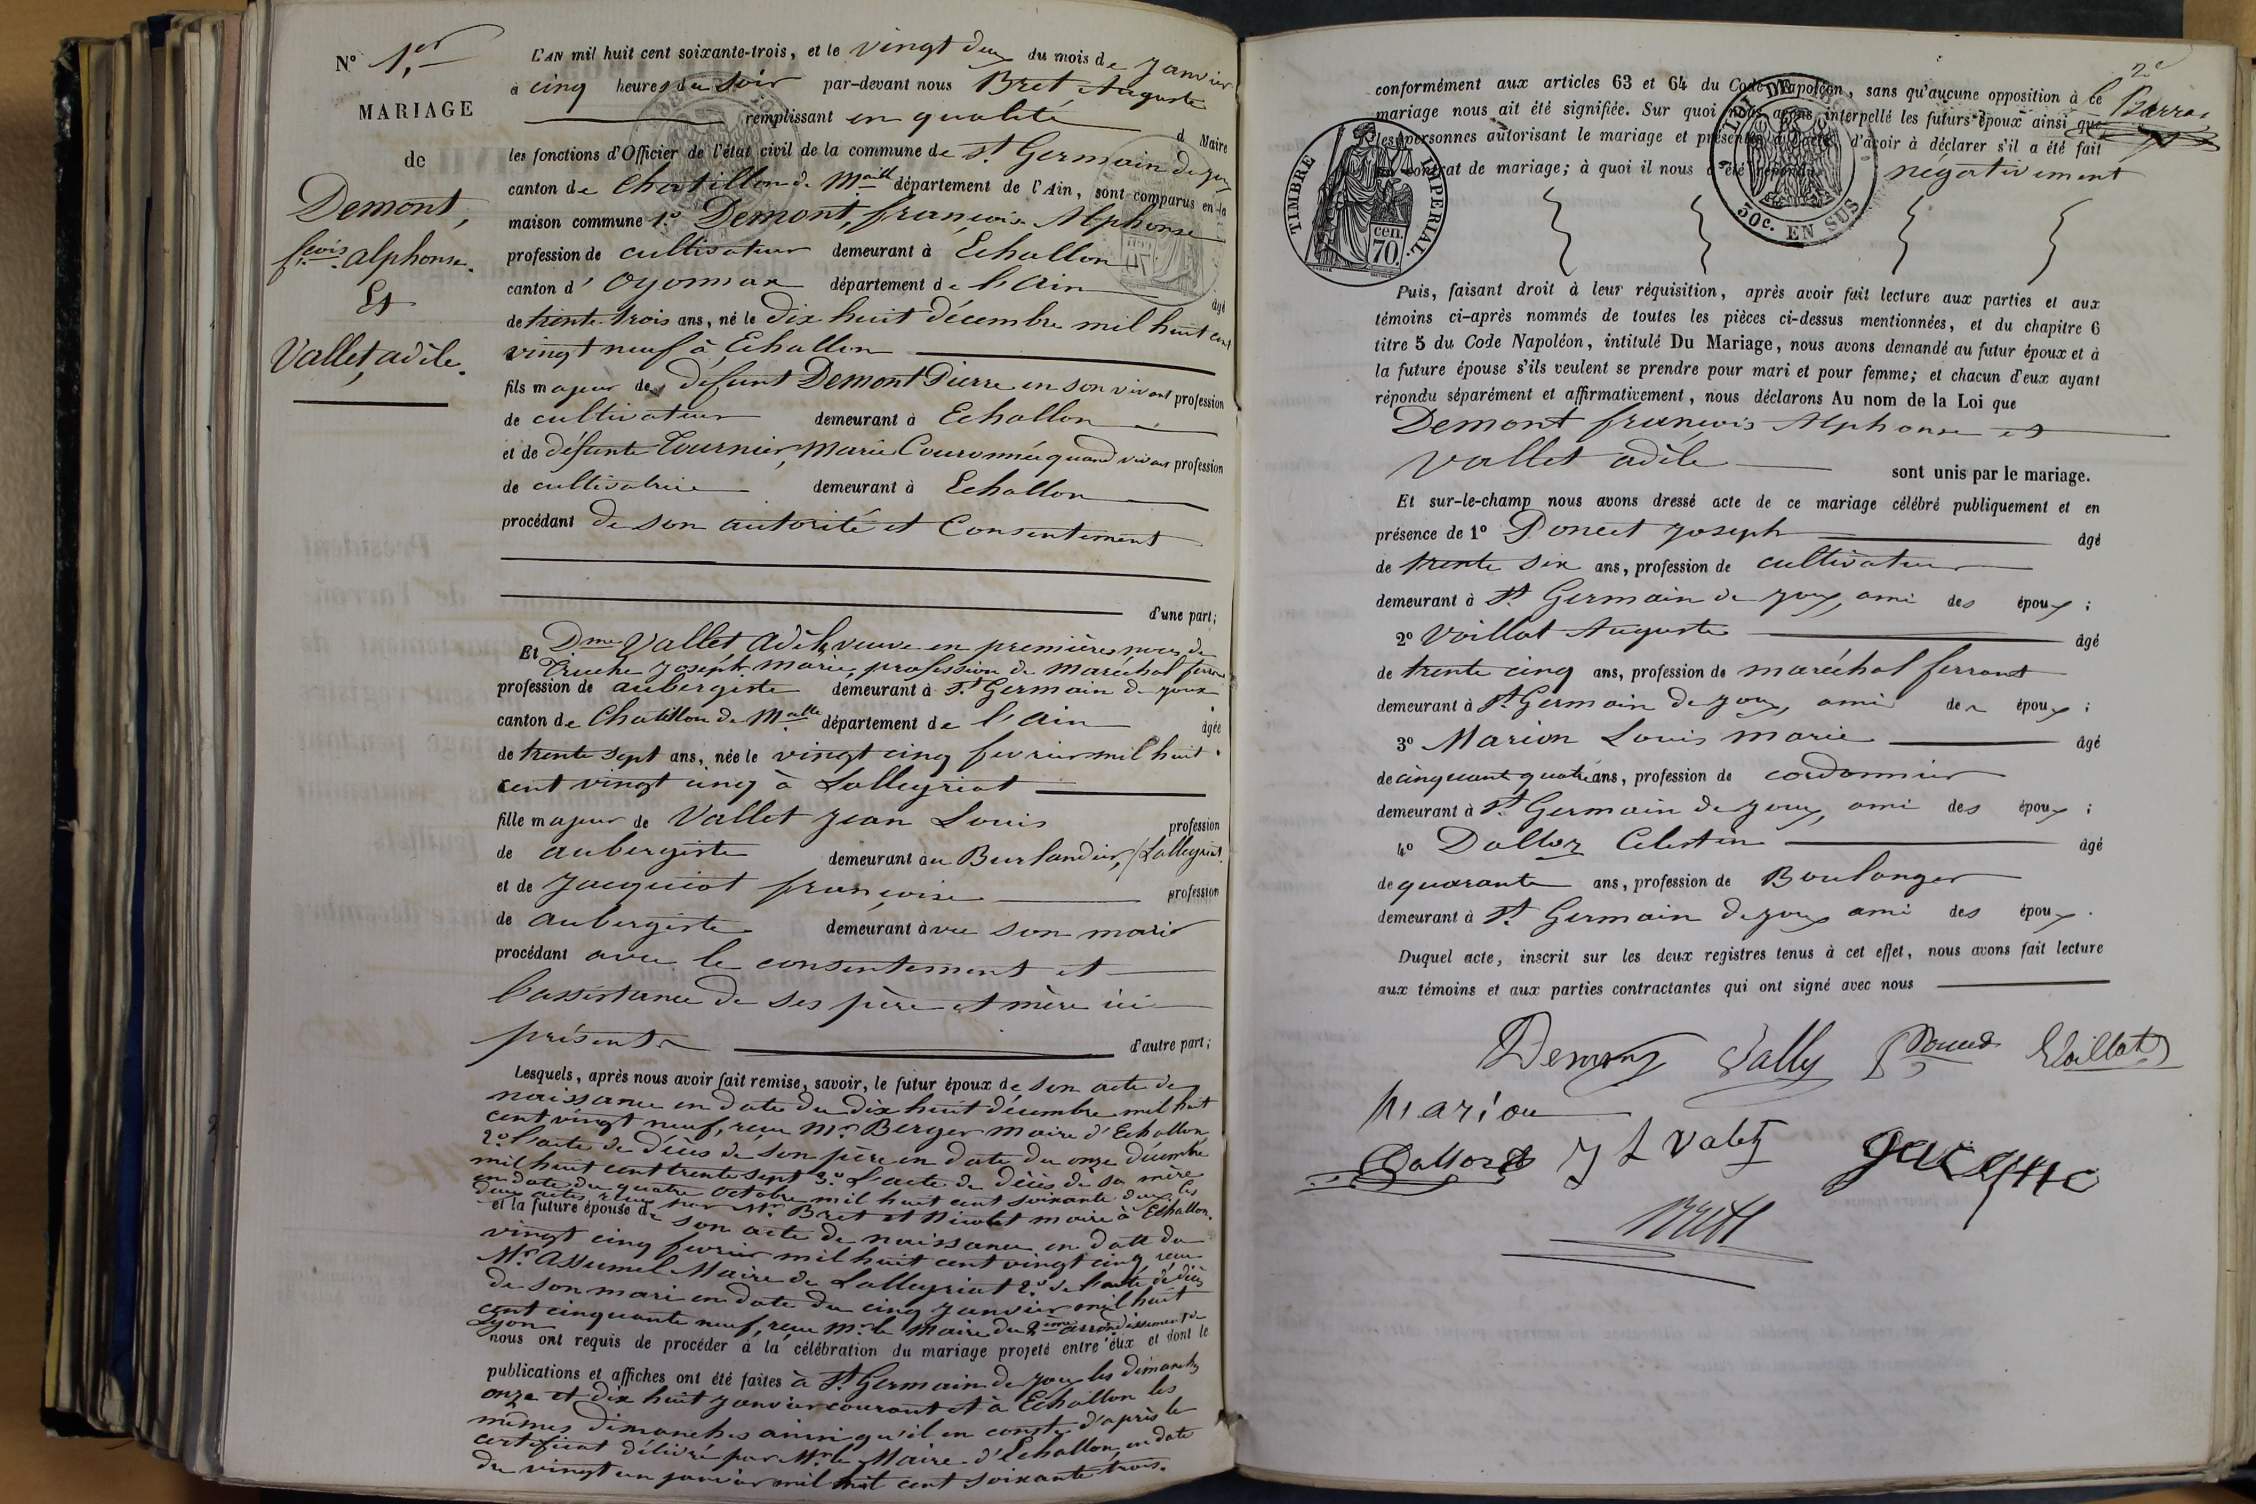 N° 1.er
MARIAGE
de
Demont,
f.cois alphonse.
Et
Vallet, adèle.
L'AN mil huit cent soixante-trois, et le vingt deux du mois de Janvier
à cinq heures du soir par-devant nous Bret, Auguste
remplissant en qualité d Maire
les fonctions d'Officier de l'état civil de la commune de St Germain de Joux
canton de Chatillon de Maille département de l'Ain, sont comparus en la
maison commune 1° Demont, françois Alphonse
profession de cultivateur demeurant à Echallon
canton d' Oyonnax département de l'Ain âgé
de trente-trois ans, né le dix huit décembre mil huit cent
vingt neuf à Echallon
fils majeur de défunt Demont Pierre en son vivant profession
de cultivateur demeurant à Echallon
et de défunte Tournier, Marie Couronnée quand vivait profession
de cultivatrice demeurant à Echallon
procédant de son autorité et Consentement
d'une part;
Et Dme Vallet Adèle, veuve en premières noces de
Joseph marie, profession de maréchal ferrant
profession de aubergiste demeurant à St Germain de Joux
canton de Chatillon de Malle département de l'Ain âgée
de trente sept ans, née le vingt cinq fevrier mil huit
cent vingt cinq à Lalleyriat
fille majeur de Vallet Jean Louis profession
de aubergiste demeurant au Burlandier, (Lalleyriat)
et de Jacquiot françoise profession
de aubergiste demeurant avec son mari
procédant avec le consentement et
l'assistance de ses père et mère ici
présents d'autre part;
Lesquels, après nous avoir fait remise, savoir, le futur époux de son acte de
naissance en date du dix huit décembre mil huit
cent vingt neuf, reçu Mr Berger maire d'Echallon
2° l'acte de décès de son père en date du onze décembre
mil huit cent trente sept 3° l'acte de décès de sa mère
en date du quatre octobre mil huit cent soixante deux, les
deux actes reçus par Mr Bret et Nicolet maire à Echallon.
et la future épouse de son acte de naissance en date du
vingt cinq fevrier mil huit cent vingt cinq reçu
Mr Assumel Maire de Lalleyriat 2° de l'acte de décès
de son mari en date du cinq janvier mil huit
cent cinquante neuf, reçu Mr le Maire du 2ème arrondissement de
Lyon
nous ont requis de procéder à la célébration du mariage projeté entre eux et dont le
publications et affiches ont été faites à St Germain de Joux les dimanches
onze et dix huit janvier courant et à Echallon les
mêmes dimanches ainsi qu'il en conste d'après le
certificat délivré par Mr le Maire d'Echallon, en date
du vingt un janvier mil huit cent soixante trois.
2e
conformément aux articles 63 et 64 du Code Napoléon, sans qu'aucune opposition à ce
mariage nous ait été signifiée. Sur quoi nous avons interpellé les futurs époux ainsi que
les personnes autorisant le mariage et présentes à l'acte, d'avoir à déclarer s'il a été fait
un contrat de mariage; à quoi il nous a été répondu négativement
TIMBRE IMPÉRIAL.
cen.
70.
10e DE
50c. EN SUS
Puis, faisant droit à leur réquisition, après avoir fait lecture aux parties et aux
témoins ci-après nommés de toutes les pièces ci-dessus mentionnées, et du chapitre 6
titre 5 du Code Napoléon, intitulé Du Mariage, nous avons demandé au futur époux et à
la future épouse s'ils veulent se prendre pour mari et pour femme; et chacun d'eux ayant
répondu séparément et affirmativement, nous déclarons Au nom de la Loi que
Demont françois Alphonse et
Vallet adèle sont unis par le mariage.
Et sur-le-champ nous avons dressé acte de ce mariage célébré publiquement et en
présence de 1° Poncet Joseph âgé
de trente six ans, profession de cultivateur
demeurant à St Germain de Joux, ami des époux;
2° Voillat Auguste âgé
de trente cinq ans, profession de maréchal ferrant
demeurant à St Germain de Joux, ami des époux;
3° Marion Louis marie âgé
de cinquante quatre ans, profession de cordonnier
demeurant à St Germain de Joux, ami des époux;
4° Dalloz Celestin âgé
de quarante ans, profession de Boulanger
demeurant à St Germain de Joux ami des époux.
Duquel acte, inscrit sur les deux registres tenus à cet effet, nous avons fait lecture
aux témoins et aux parties contractantes qui ont signé avec nous
Demont Vally Poncet Voillat
Marion
Dalloz J L Valet
Bret